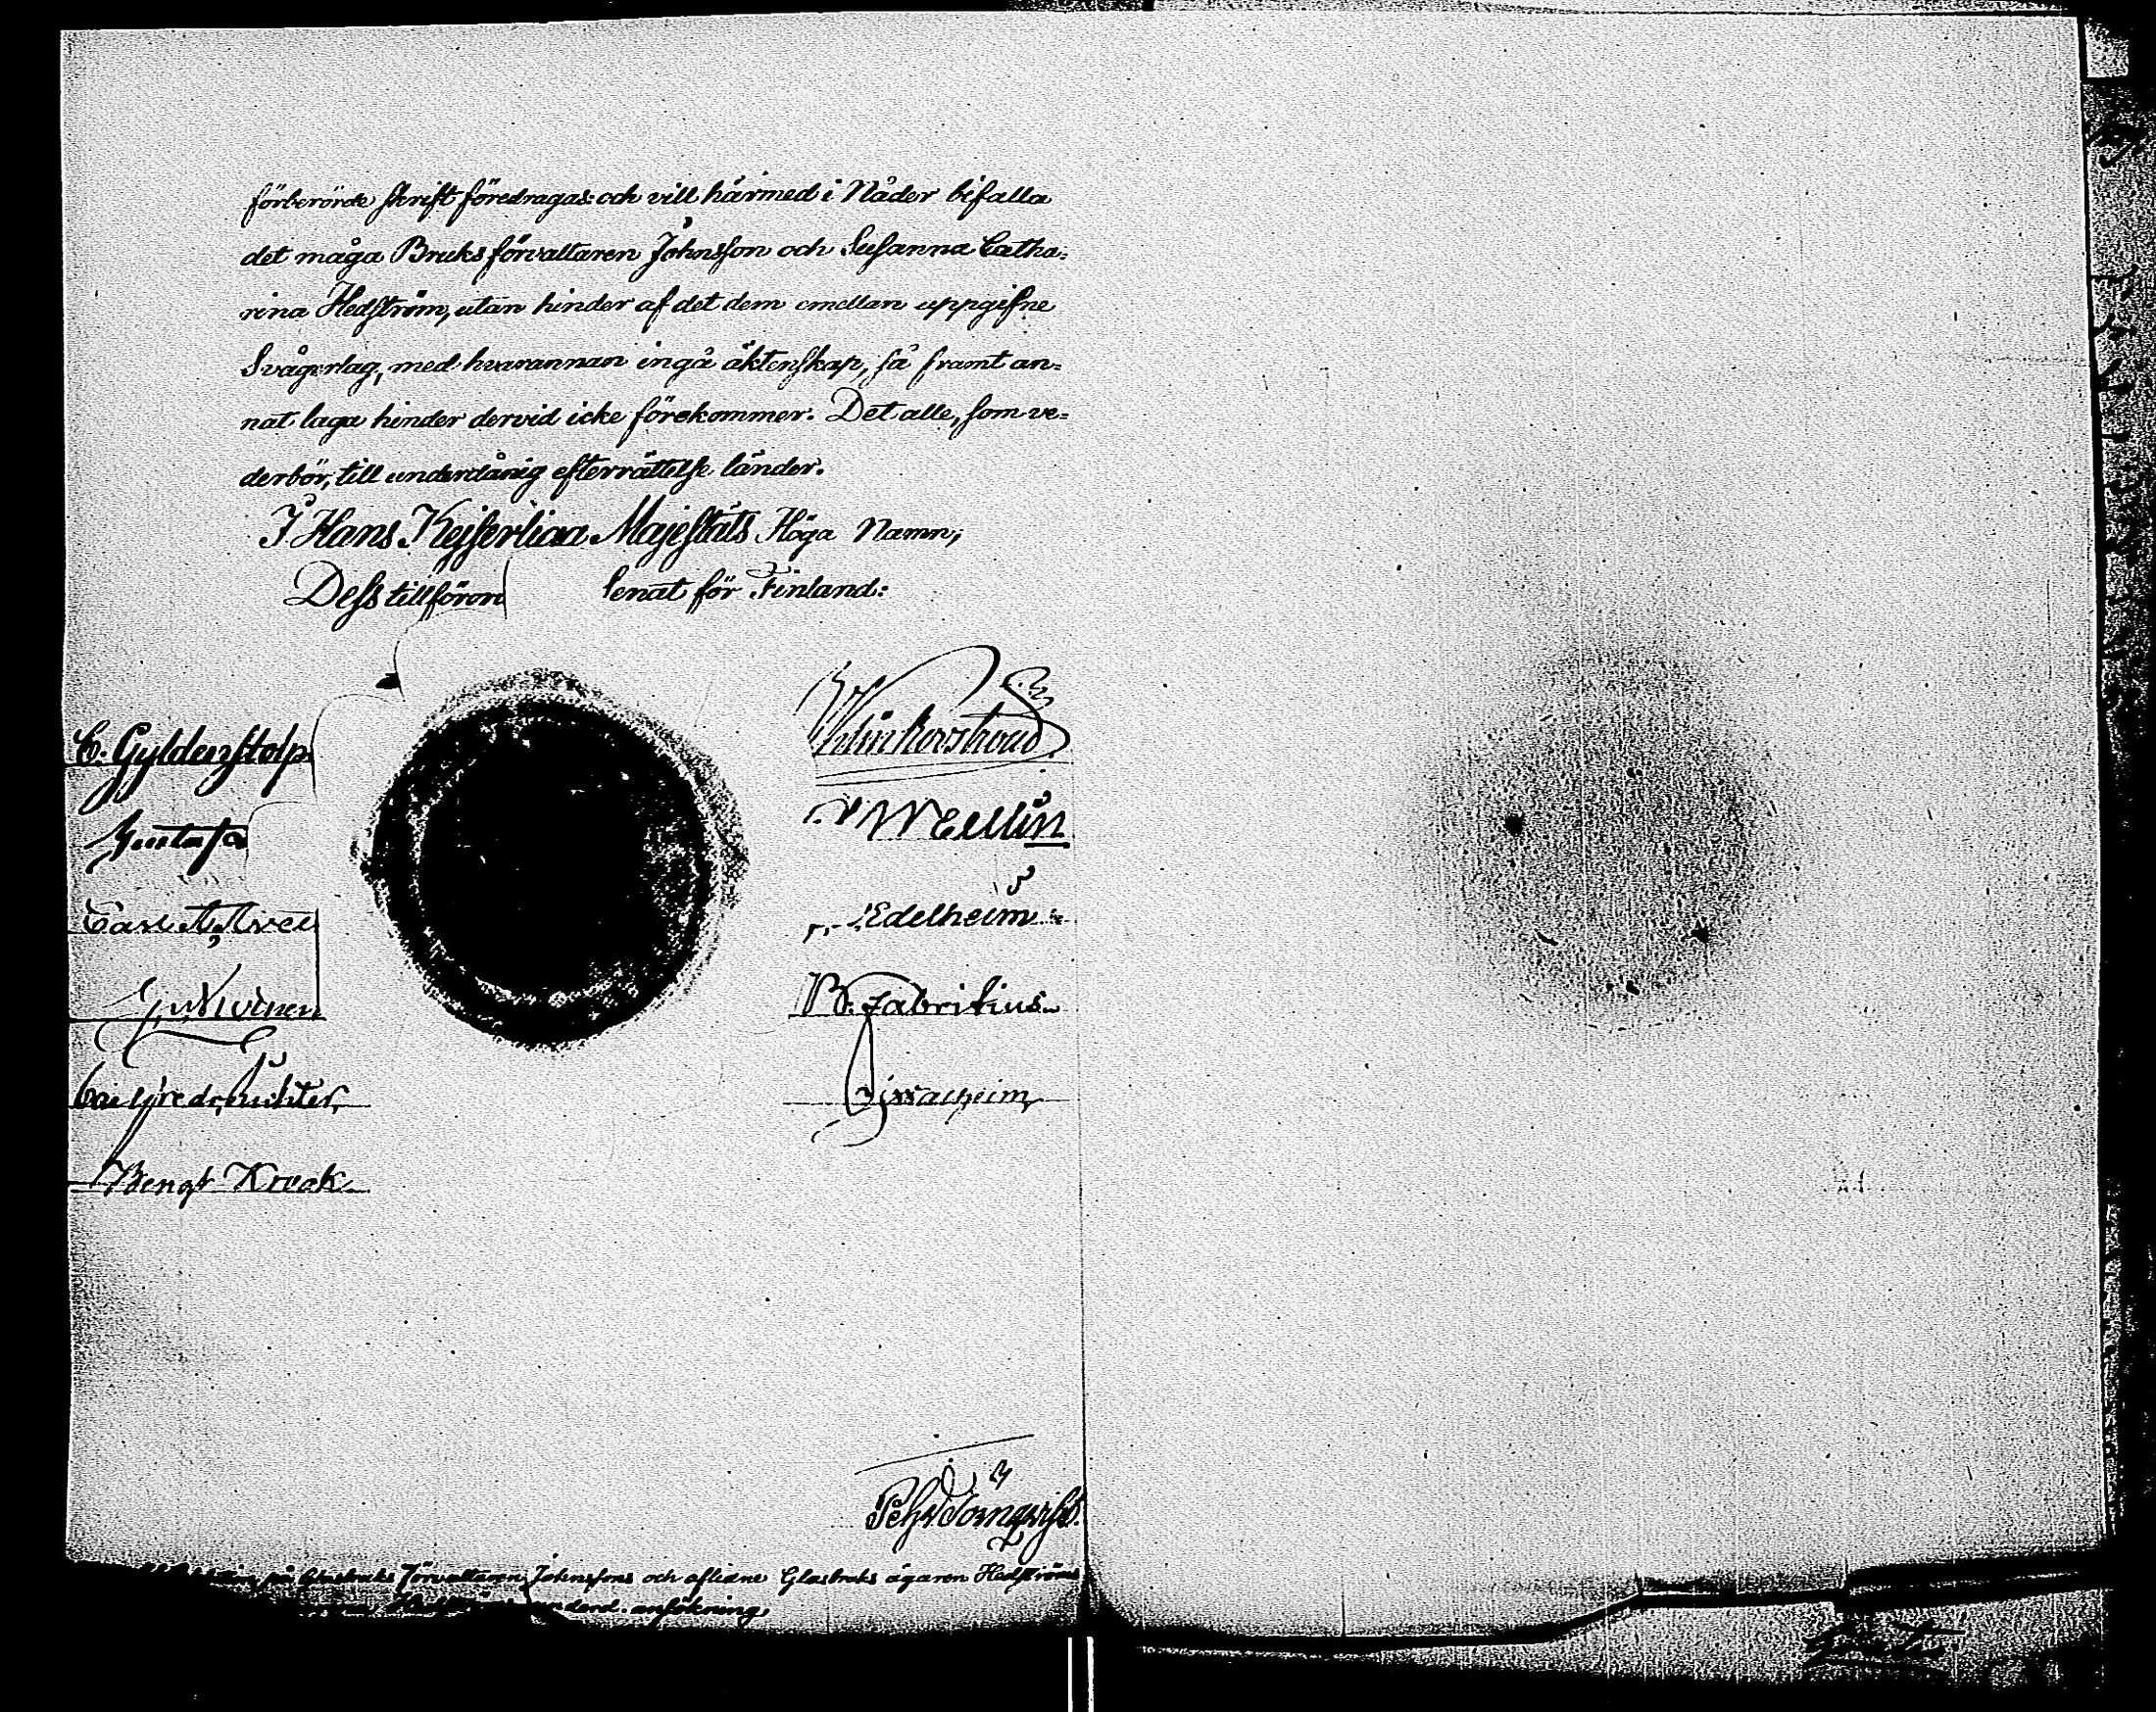 förberörde skrift föredragas: och vill härmed i Nåder bifalla
det måga Bruksförvaltaren Johnsson och Susanna Catha=
rina Hedström, utan hinder af det dem emellan uppgifne
Svågerlag, med hvarannan ingå äktenskap, så framt an=
nat laga hinder dervid icke förekommer. Det alle, som ve=
derbör, till underdånig efterrättelse länder.
I Hans Kejserliga Majestäts Höga Namn,
Dess tillförord Senat för Finland:
C. Gyldenstolp
Klinkowström
Gustaf
Wellin
Carl
Edelheim
B. Fabritius
Bengt Kraak
Pehr Törnqvist
på Glasbruks Förvaltaren Johnssons och aflidne Glasbruks ägaren Hedströms
ansökning